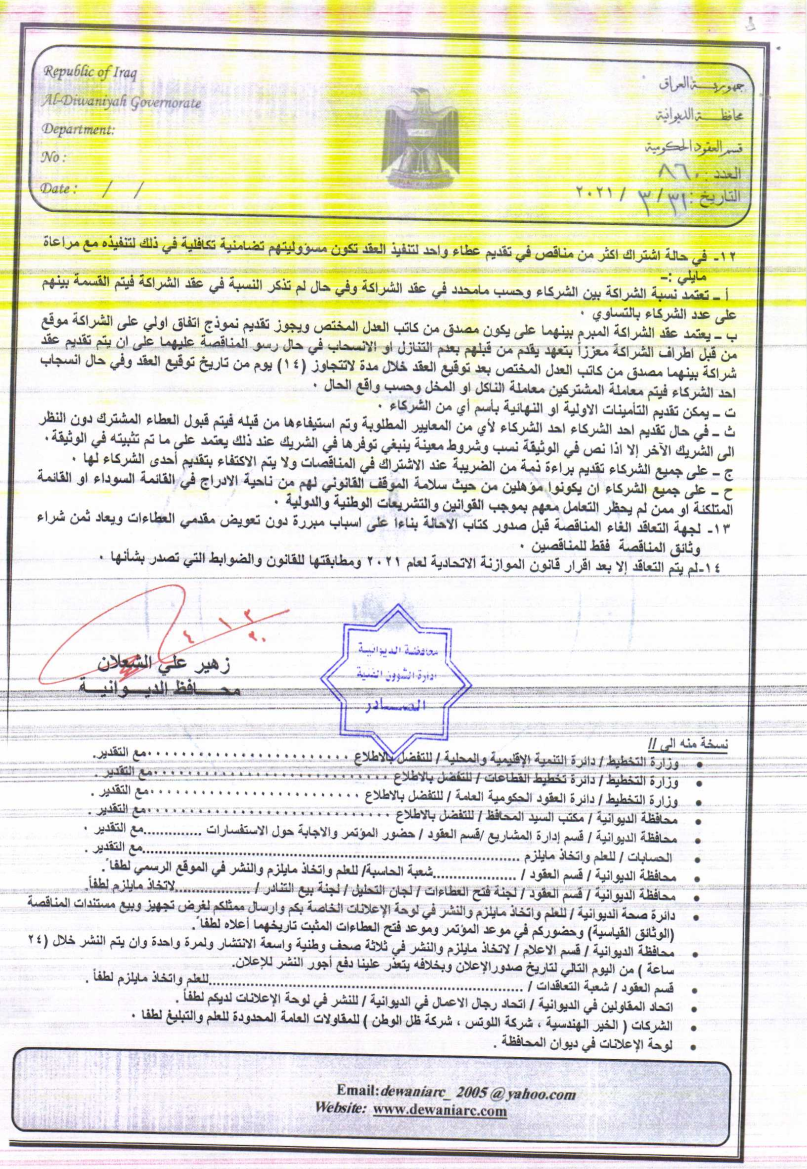 Republic of Iraq
Al-Diwaniyah Governorate
Department:
No :
Date : / /
جمهوريـــة العراق
محافظـــة الديوانية
قسم العقود الحكومية
العدد : ٨٦٠
التاريخ : ٣١ / ٣ / ٢٠٢١
١٢- في حالة اشتراك اكثر من مناقص في تقديم عطاء واحد لتنفيذ العقد تكون مسؤوليتهم تضامنية تكافلية في ذلك لتنفيذه مع مراعاة
مايلي :–
أ – تعتمد نسبة الشراكة بين الشركاء وحسب مامحدد في عقد الشراكة وفي حال لم تذكر النسبة في عقد الشراكة فيتم القسمة بينهم
على عدد الشركاء بالتساوي .
ب – يعتمد عقد الشراكة المبرم بينهما على يكون مصدق من كاتب العدل المختص ويجوز تقديم نموذج اتفاق اولي على الشراكة موقع
من قبل اطراف الشراكة معززاً بتعهد يقدم من قبلهم بعدم التنازل او الانسحاب في حال رسو المناقصة عليهما على ان يتم تقديم عقد
شراكة بينهما مصدق من كاتب العدل المختص بعد توقيع العقد خلال مدة لاتتجاوز (١٤) يوم من تاريخ توقيع العقد وفي حال انسحاب
احد الشركاء فيتم معاملة المشتركين معاملة الناكل او المخل وحسب واقع الحال .
ت – يمكن تقديم التأمينات الاولية او النهائية بأسم أي من الشركاء .
ث – في حال تقديم احد الشركاء احد الشركاء لأي من المعايير المطلوبة وتم استيفاءها من قبله فيتم قبول العطاء المشترك دون النظر
الى الشريك الآخر إلا اذا نص في الوثيقة نسب وشروط معينة ينبغي توفرها في الشريك عند ذلك يعتمد على ما تم تثبيته في الوثيقة.
ج – على جميع الشركاء تقديم براءة ذمة من الضريبة عند الاشتراك في المناقصات ولا يتم الاكتفاء بتقديم أحدى الشركاء لها .
ح – على جميع الشركاء ان يكونوا مؤهلين من حيث سلامة الموقف القانوني لهم من ناحية الادراج في القائمة السوداء او القائمة
المتلكنة او ممن لم يحظر التعامل معهم بموجب القوانين والتشريعات الوطنية والدولية .
١٣- لجهة التعاقد الغاء المناقصة قبل صدور كتاب الاحالة بناءاً على اسباب مبررة دون تعويض مقدمي العطاءات ويعاد ثمن شراء
وثائق المناقصة فقط للمناقصين .
١٤-لم يتم التعاقد إلا بعد اقرار قانون الموازنة الاتحادية لعام ٢٠٢١ ومطابقتها للقانون والضوابط التي تصدر بشأنها .
زهير علي الشعلان
محــافظ الديــوانيــة
محافظة الديوانية
ادارة الشؤون الفنية
الصادر
نسخة منه الى //
• وزارة التخطيط / دائرة التنمية الإقليمية والمحلية / للتفضل بالاطلاع ........................مع التقدير.
• وزارة التخطيط / دائرة تخطيط القطاعات / للتفضل بالاطلاع ........................مع التقدير .
• وزارة التخطيط / دائرة العقود الحكومية العامة / للتفضل بالاطلاع ........................مع التقدير .
• محافظة الديوانية / مكتب السيد المحافظ / للتفضل بالاطلاع ........................مع التقدير .
• محافظة الديوانية / قسم إدارة المشاريع /قسم العقود / حضور المؤتمر والاجابة حول الاستفسارات .............مع التقدير .
• الحسابات / للعلم واتخاذ مايلزم ........................مع التقدير .
• محافظة الديوانية / قسم العقود / ................شعبة الحاسبة/ للعلم واتخاذ مايلزم والنشر في الموقع الرسمي لطفاً.
• محافظة الديوانية / قسم العقود / لجنة فتح العطاءات / لجان التحليل / لجنة بيع التنادر / ................لاتخاذ مايلزم لطفاً.
• دائرة صحة الديوانية / للعلم واتخاذ مايلزم والنشر في لوحة الإعلانات الخاصة بكم وارسال ممثلكم لغرض تجهيز وبيع مستندات المناقصة
(الوثائق القياسية) وحضوركم في موعد المؤتمر وموعد فتح العطاءات المثبت تاريخهما أعلاه لطفاً.
• محافظة الديوانية / قسم الاعلام / لاتخاذ مايلزم والنشر في ثلاثة صحف وطنية واسعة الانتشار ولمرة واحدة وان يتم النشر خلال (٢٤
ساعة ) من اليوم التالي لتاريخ صدورالإعلان وبخلافه يتعذر علينا دفع أجور النشر للإعلان.
• قسم العقود / شعبة التعاقدات / ................للعلم واتخاذ مايلزم لطفاً .
• اتحاد المقاولين في الديوانية / اتحاد رجال الاعمال في الديوانية / للنشر في لوحة الإعلانات لديكم لطفاً .
• الشركات ( الخير الهندسية ، شركة اللوتس ، شركة ظل الوطن ) للمقاولات العامة المحدودة للعلم والتبليغ لطفا .
• لوحة الإعلانات في ديوان المحافظة .
Email: dewaniarc_ 2005 @ yahoo.com
Website: www.dewaniarc.com